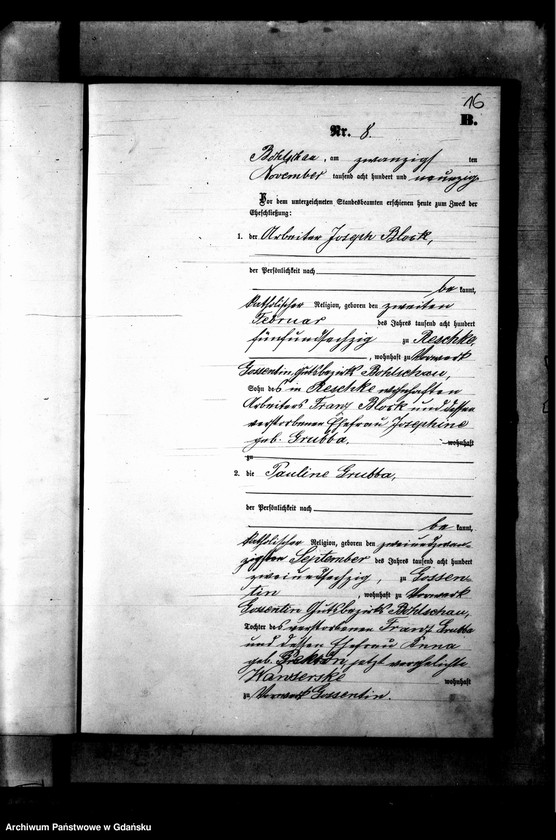 16
B.
Nr. 8.
Bohlschau, am zwanzigsten
November tausend acht hundert und neunzig
Vor dem unterzeichneten Standesbeamten erschienen heute zum Zweck der
Eheschließung:
1. der Arbeiter Joseph Block,
der Persönlichkeit nach
be kannt,
katholischer Religion, geboren den zweiten
Februar des Jahres tausend acht hundert
fünfundsechzig zu Reschke
, wohnhaft zu Vorwerk
Gossentin Gutsbezirk Bohlschau,
Sohn des in Reschke wohnhaften
Arbeiters Franz Block und dessen
verstorbenen Ehefrau Josephine
geb. Grubba. wohnhaft
zu
2. die Pauline Grubba,
der Persönlichkeit nach
be kannt,
katholischer Religion, geboren den zweiundzwan-
zigsten September des Jahres tausend acht hundert
zweiundsechzig, zu Gossen-
tin, wohnhaft zu Vorwerk
Gossentin Gutsbezirk Bohlschau,
Tochter des verstorbenen Franz Grubba
und dessen Ehefrau Anna
geb. jetzt verehelichte
wohnhaft
zu Vorwerk Gossentin.
Archiwum Państwowe w Gdańsku